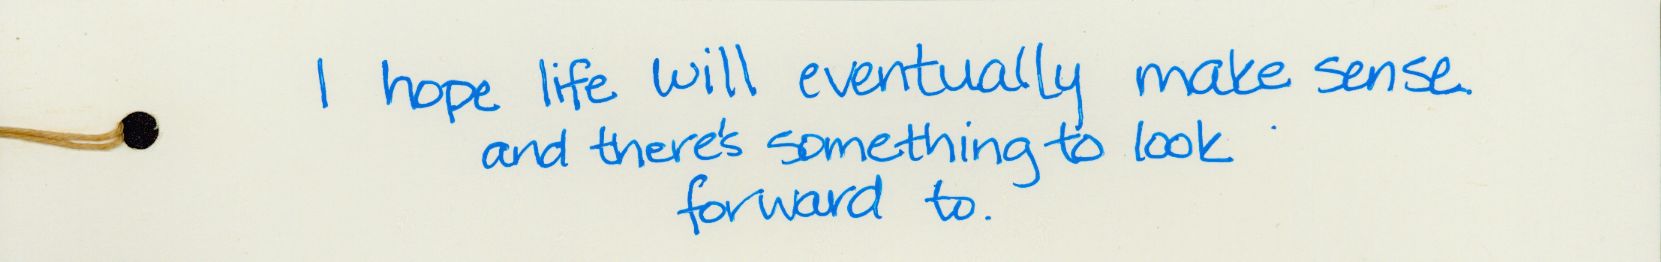 I hope life will eventually make sense.
and there's something to look
forward to.